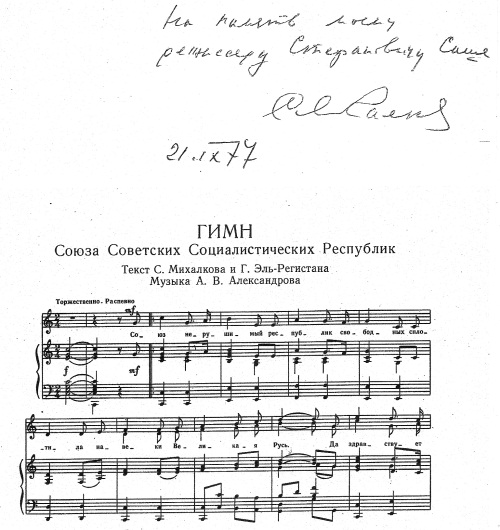 На память моему
режиссеру Стефановичу Саше
21.IX 77
ГИМН
Союза Советских Социалистических Республик
Текст С. Михалкова и Г. Эль-Регистана
Музыка А. В. Александрова
Торжественно. Распевно
mf
Со_ юз не_ ру_ ши_ мый рес_ пуб_ лик сво_ бод_ ных спло_
f mf
ти_ ла на_ ве_ ки Ве_ ли_ ка_ я Русь. Да здрав_ ству_ ет